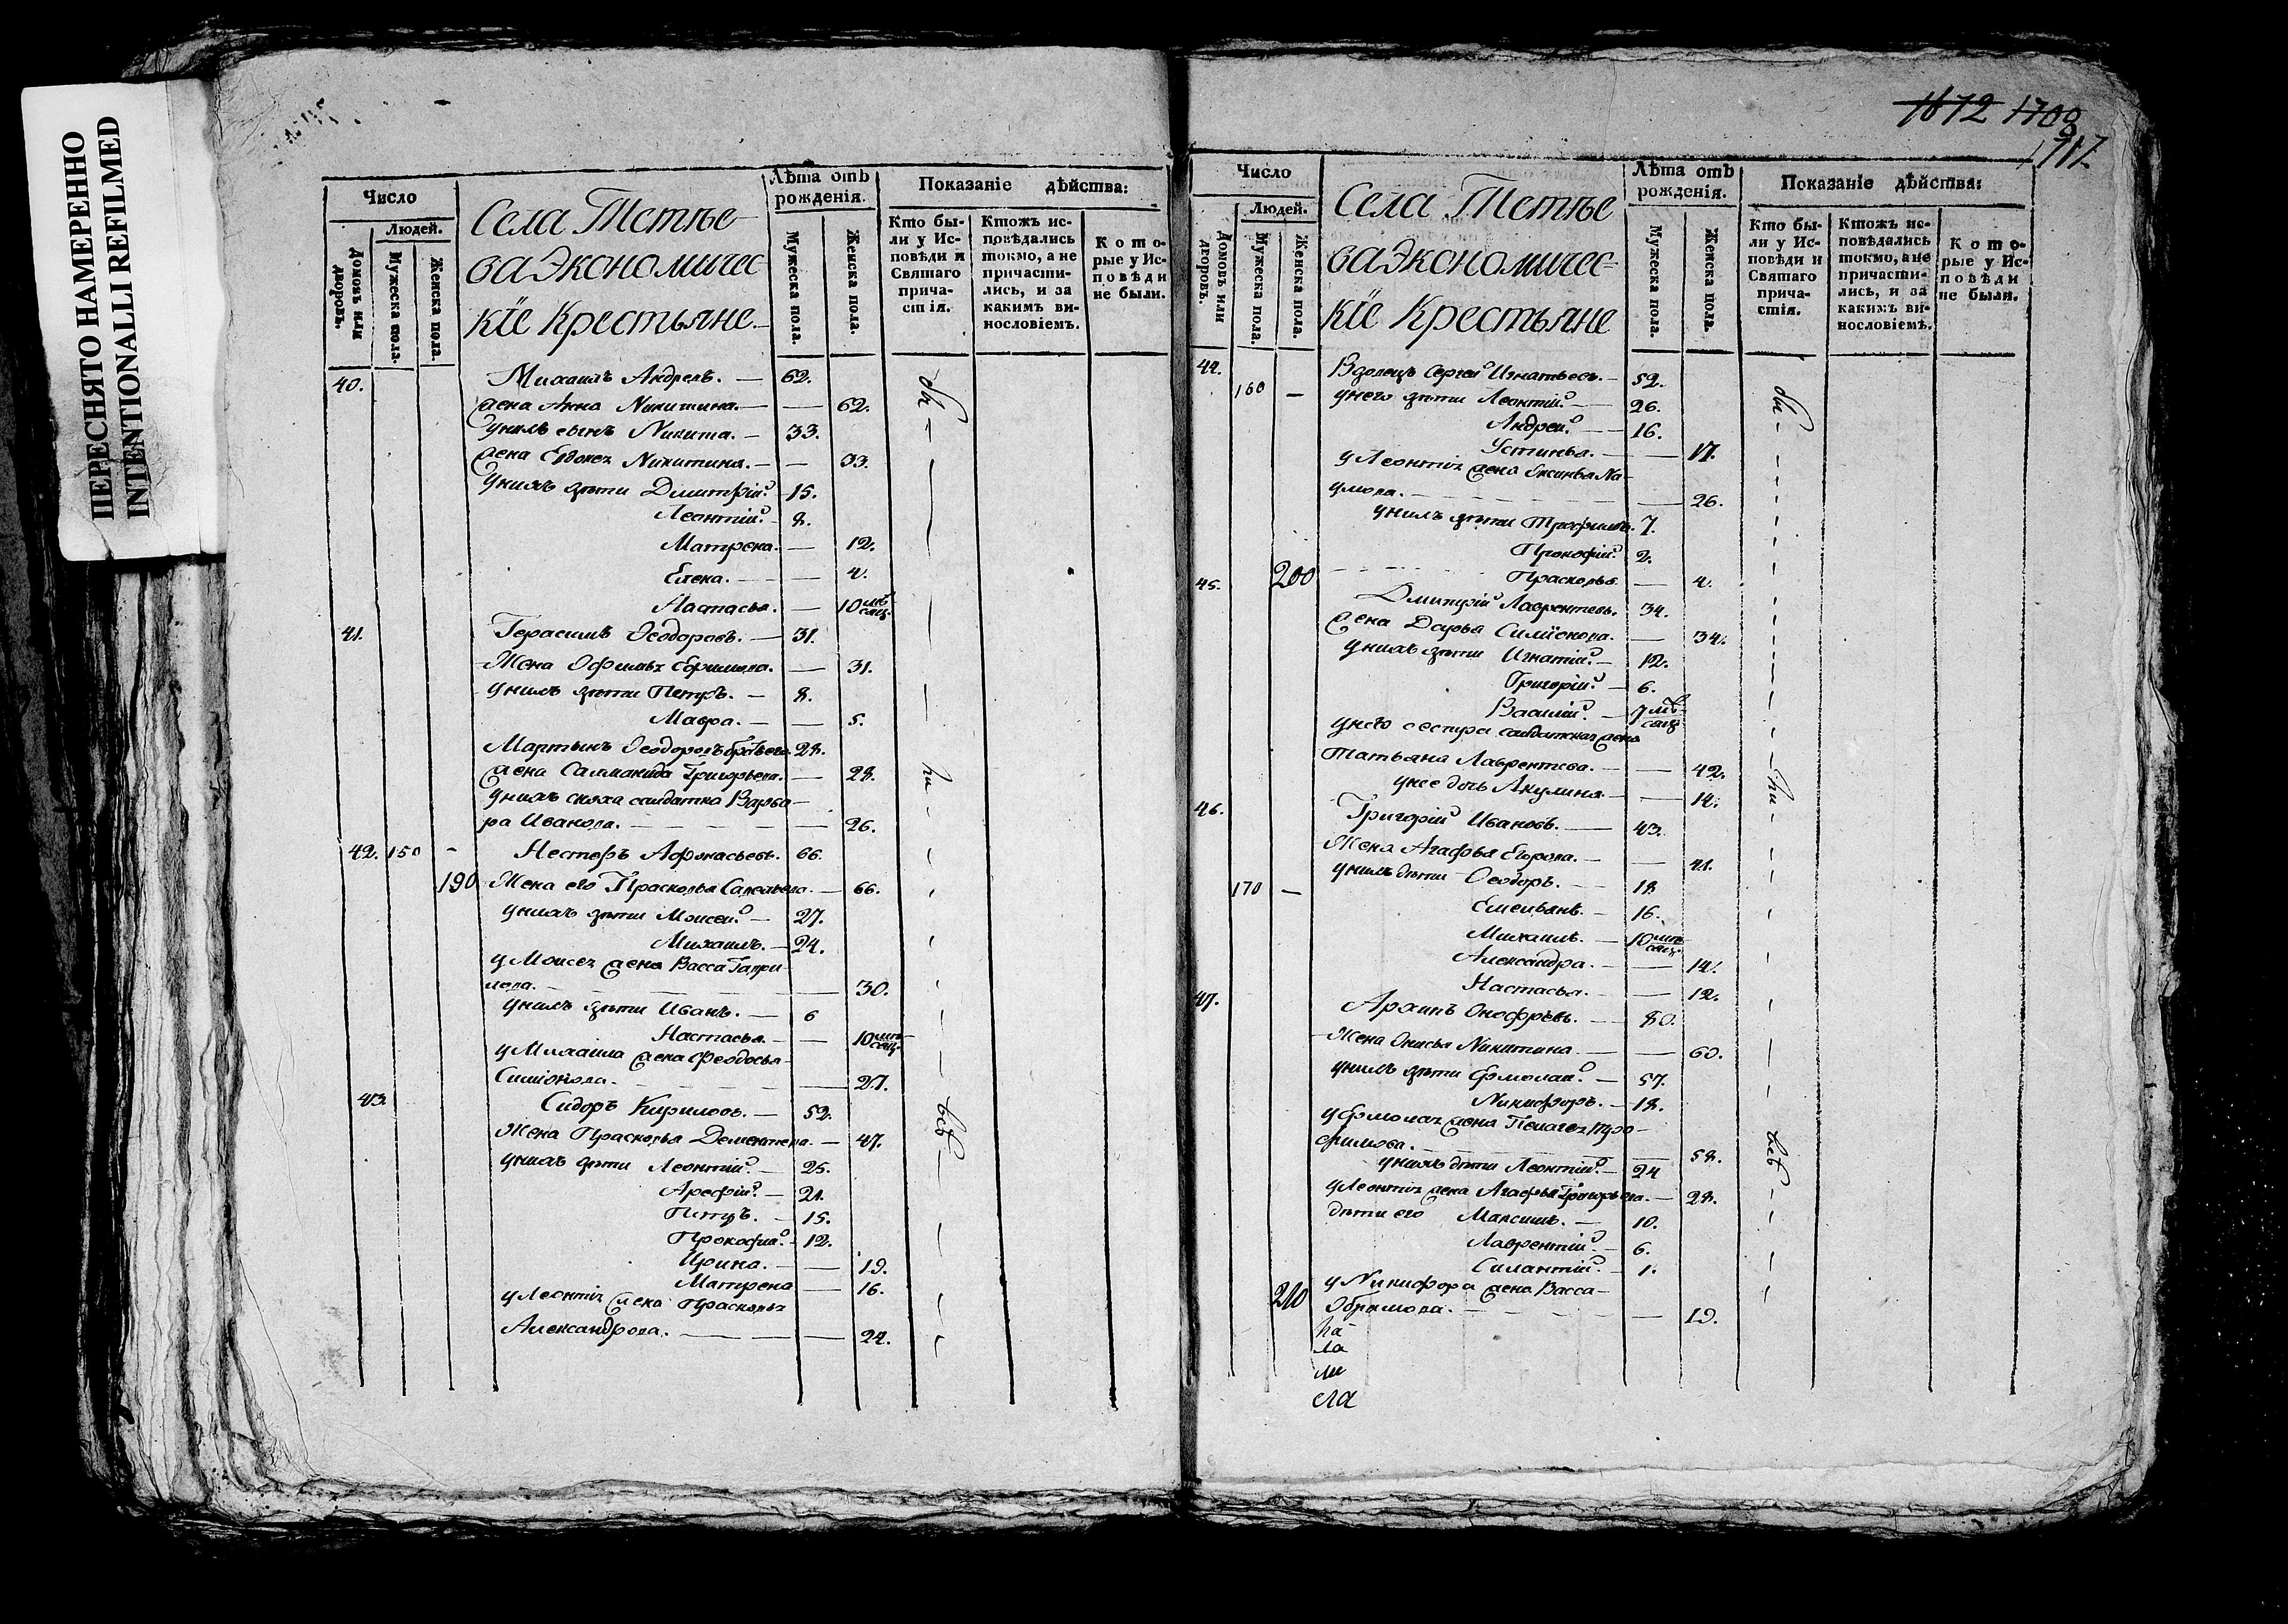 ПЕРЕСНЯТО НАМЕРЕННО
INTENTIONALLI REFILMED
Число
Людей.
Домовъ или дворовъ.
Мужеска пола.
Женска пола.
Села Тетње
ва Экономичес
кїе Крестьяне
Лѣта отъ рожденія.
Мужеска пола.
Женска пола.
Показаніе дѣйства:
Кто бы-
ли у Ис-
повѣди и
Святаго
прича-
стія.
Ктожъ ис-
повѣдались
токмо, а не
причасти-
лись, и за
какимъ ви-
нословіемъ.
Кото-
рые у Ис-
повѣди
не были.
40. Михаилъ Андреевъ. — 62.
жена Анна Никитина. — 62.
у нихъ сынъ Никита. — 33.
жена Евдокея Никитина. — 33.
у нихъ дѣти Димитрій. 15.
Леонтій. 8.
Матрена. — 12.
Елена. — 4.
Настасья. — 10 мѣсяц.
41. Герасимъ Ѳеодоровъ. — 31.
Жена Ефимова. — 31.
у нихъ дѣти Петръ. — 8.
Мавра. — 5.
Мартынъ Ѳеодоровъ братъ его 28.
жена Саламанида Григорьева. — 28.
у нихъ сноха салдатка Варва-
ра Иванова. — 26.
42. 150 - Несторъ Афонасьевъ. 66.
190 Жена его Прасковья Савельева. — 66.
у нихъ дѣти Моисей. — 27.
Михаилъ. — 24.
у Моисея жена Васса Гаври-
лова. — 30.
у нихъ дѣти Иванъ. — 6
Настасья. — 10 мѣсяц.
у Михаила жена Феодосья
Симіонова. — 27.
43. Сидоръ Кириловъ. — 52.
Жена Прасковья Дементева. — 47.
у нихъ дѣти Леонтій. — 25.
Арефій. — 21.
Петръ. — 15.
Прокофій. — 12.
Ирина. — 19.
Матрена — 16.
у Леонтія жена Прасковья
Александрова. — 24.
бы
ли
всѣ
1672 1708
1717
Число
Людей.
Домовъ или дворовъ.
Мужеска пола.
Женска пола.
Села Тетње
ва Экономичес=
кїе Крестьяне
Лѣта отъ рожденія.
Мужеска пола.
Женска пола.
Показаніе дѣйства:
Кто бы-
ли у Ис-
повѣди и
Святаго
прича-
стія.
Ктожъ ис-
повѣдались
токмо, а не
причасти-
лись, и за
какимъ ви-
нословіемъ.
Кото-
рые у Ис-
повѣди
не были.
44. Вдовецъ Сергей Игнатьевъ. — 52.
160 — у него дѣти Леонтій. — 26.
Андрей. — 16.
Устинья. — 17.
у Леонтія жена Оксинья На-
умова. — 26.
у нихъ дѣти Трофимъ. 7.
Прокофій. 2.
200 Прасковья — 4.
45. Димитрій Лаврентевъ. 34.
Жена Дарья Симїонова. — 34.
у нихъ дѣти Игнатій. — 12.
Григорій. — 6.
Василій. — 7 мѣсяц
у него сестра салдатская жена
Татьяна Лаврентева. — 42.
у нее дочь Акулина. — 14.
46. Григорій Ивановъ. — 43.
Жена Агафья Егорова. — 41.
170 — у нихъ дѣти Ѳеодоръ. — 18
Емельянъ. — 16.
Михаилъ. — 10 мѣсяц
Александра. — 14.
Настасья. — 12.
47. Архипъ Онофрѣевъ. — 80.
Жена Онисья Никитина — 60.
у нихъ дѣти Ермолай. — 57.
Никифоръ. — 18.
у Ермолая жена Пелагея
— 58.
у нихъ дѣти Леонтій. — 24
у Леонтія жена Агафья Григорьева. — 28.
дѣти его Максимъ. — 10.
Лаврентій. — 6.
Силантій. — 1.
у Никифора жена Васса
210 Ефимова. — 19.
ла
ли
ела
бы
ли
всѣ